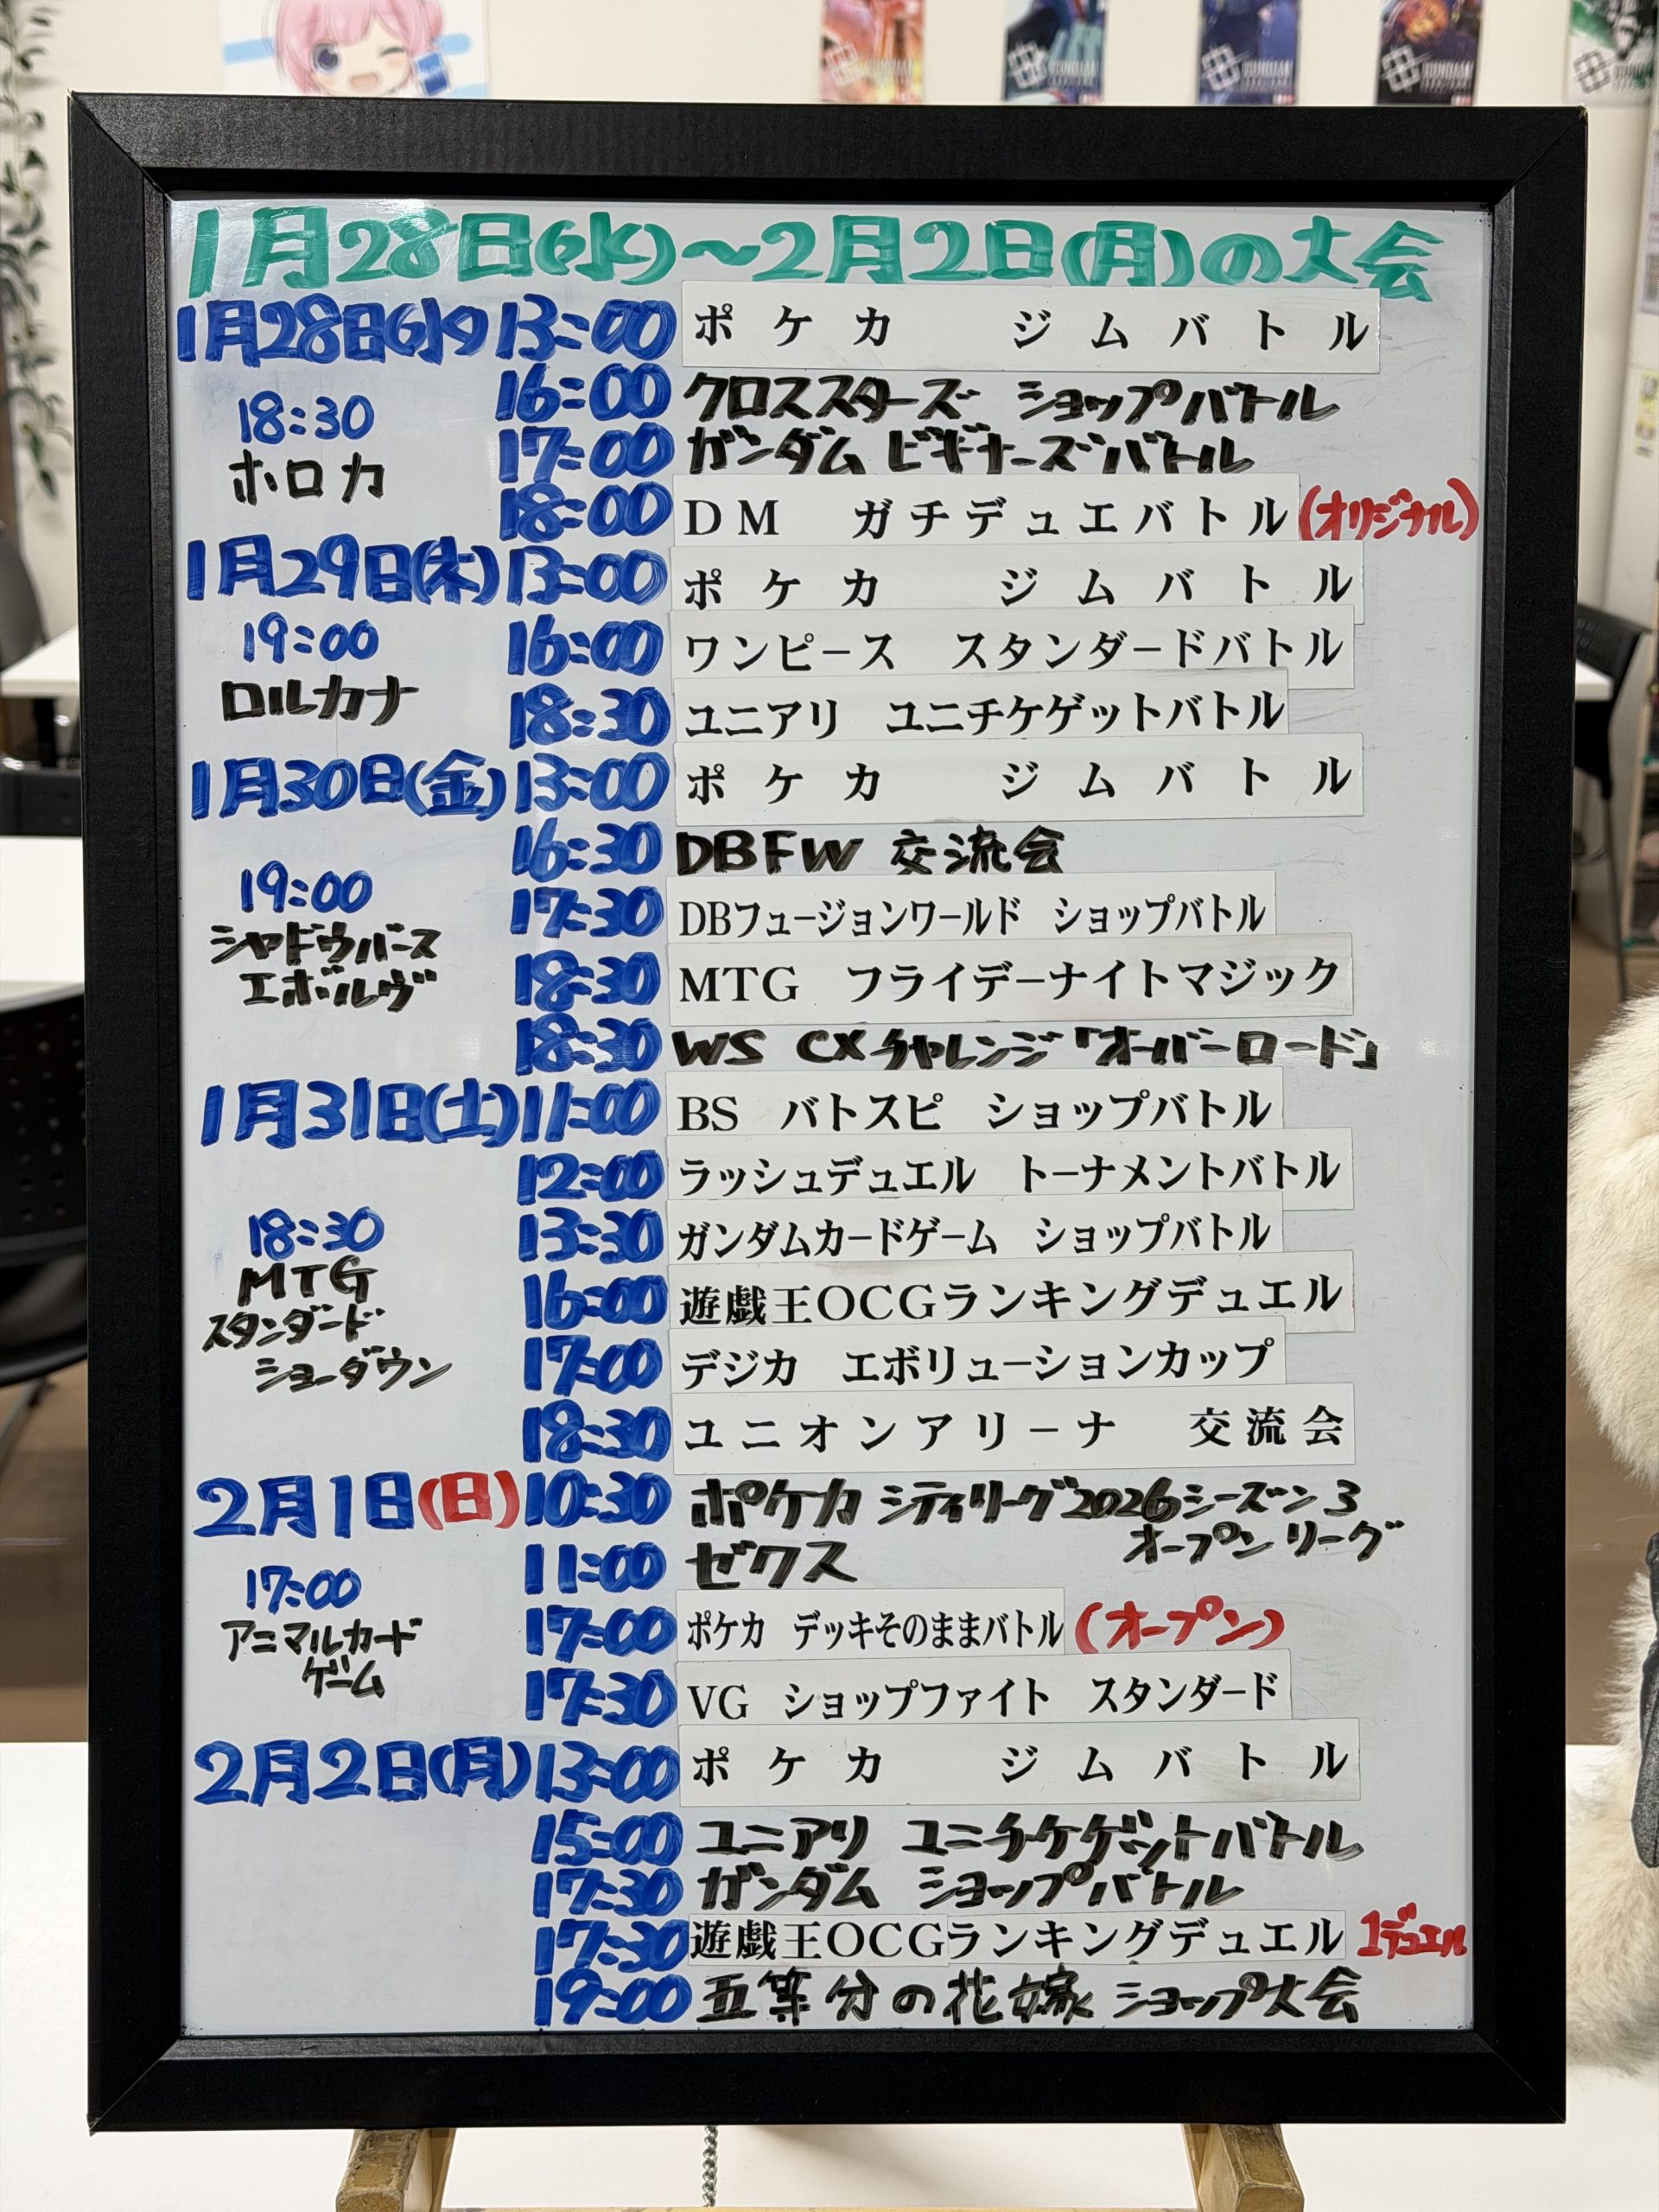 1月28日(水)～2月2日(月)の大会
1月28日(水) 13:00 ポケカ ジムバトル
16:00 クロススターズ ショップバトル
18:30
ホロカ
17:00 ガンダム ビギナーズバトル
18:00 DM ガチデュエバトル (オリジナル)
1月29日(木) 13:00 ポケカ ジムバトル
19:00
ロルカナ
16:00 ワンピース スタンダードバトル
18:30 ユニアリ ユニチケゲットバトル
1月30日(金) 13:00 ポケカ ジムバトル
16:30 DBFW 交流会
19:00
シャドウバース
エボルヴ
17:30 DBフュージョンワールド ショップバトル
18:30 MTG フライデーナイトマジック
18:30 WS CXチャレンジ「オーバーロード」
1月31日(土) 11:00 BS バトスピ ショップバトル
12:00 ラッシュデュエル トーナメントバトル
18:30
MTG
スタンダード
ショーダウン
13:30 ガンダムカードゲーム ショップバトル
16:00 遊戯王OCGランキングデュエル
17:00 デジカ エボリューションカップ
18:30 ユニオンアリーナ 交流会
2月1日(日) 10:30 ポケカ シティリーグ2026シーズン3
オープンリーグ
11:00 ゼクス
17:00
アニマルカード
ゲーム
17:00 ポケカ デッキそのままバトル (オープン)
17:30 VG ショップファイト スタンダード
2月2日(月) 13:00 ポケカ ジムバトル
15:00 ユニアリ ユニチケゲットバトル
17:30 ガンダム ショップバトル
17:30 遊戯王OCGランキングデュエル 1デュエル
19:00 五等分の花嫁 ショップ大会